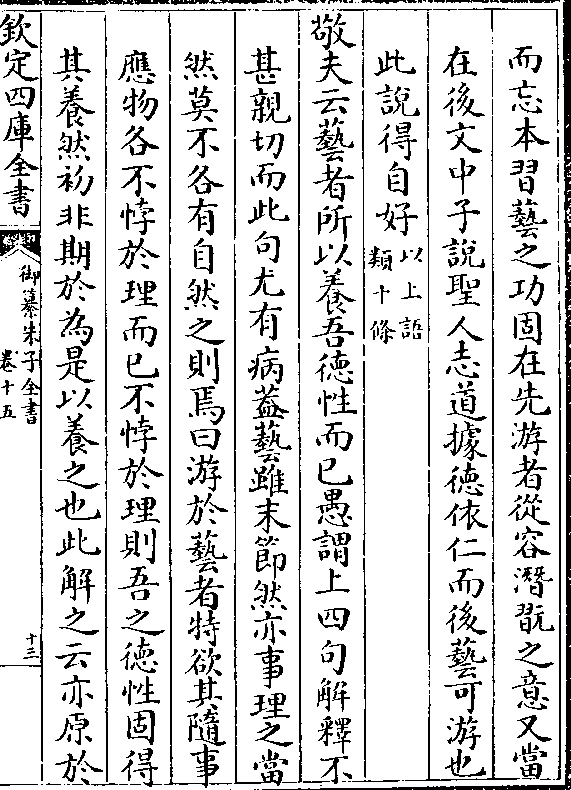 而忘本習藝之功固在先游者從容潛翫之意又當
在後文中子說聖人志道據德依仁而後藝可游也
此說得自好以上語類十條
敬夫云藝者所以養吾德性而已愚謂上四句解釋不
甚親切而此句尤有病葢藝雖末節然亦事理之當
然莫不各有自然之則焉曰游於藝者特欲其隨事
應物各不悖於理而已不悖於理則吾之德性固得
其養然初非期於為是以養之也此解之云亦原於
欽定四庫全書
御纂朱子全書
卷十五
十三